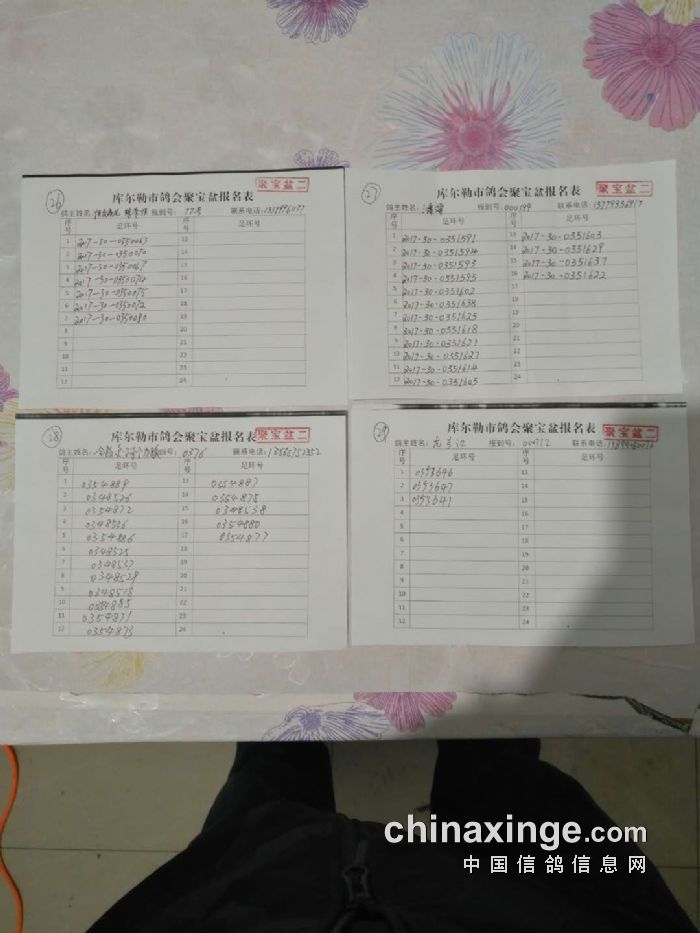 26
库尔勒市鸽会聚宝盆报名表
聚宝盆二
鸽主姓名: 报到号: 77号 联系电话:
序号 足环号 序号 足环号
1 2017-30-0350063 13
2 2017-30-0350070 14
3 2017-30-0350067 15
4 2017-30-0350074 16
5 2017-30-0350075 17
6 2017-30-0350072 18
7 2017-30-0350080 19
8 20
9 21
10 22
11 23
12 24
27
库尔勒市鸽会聚宝盆报名表
聚宝盆二
鸽主姓名: 报到号: 000199 联系电话: 13779336917
序号 足环号 序号 足环号
1 2017-30-0351591 13 2017-30-0351603
2 2017-30-0351594 14 2017-30-0351629
3 2017-30-0351593 15 2017-30-0351637
4 2017-30-0351595 16 2017-30-0351622
5 2017-30-0351602 17
6 2017-30-0351638 18
7 2017-30-0351625 19
8 2017-30-0351618 20
9 2017-30-0351621 21
10 2017-30-0351627 22
11 2017-30-0351614 23
12 2017-30-0351605 24
28
库尔勒市鸽会聚宝盆报名表
聚宝盆二
鸽主姓名: 报到号: 0376 联系电话:
序号 足环号 序号 足环号
1 0354889 13 0354887
2 0348526 14 0354878
3 0354872 15 0348538
4 0348536 16 0354880
5 0354886 17 0354877
6 0348525 18
7 0348537 19
8 0348528 20
9 0348518 21
10 0354885 22
11 0354871 23
12 0354873 24
29
库尔勒市鸽会聚宝盆报名表
聚宝盆二
鸽主姓名: 报到号: 000712 联系电话:
序号 足环号 序号 足环号
1 0393646 13
2 0393647 14
3 0393641 15
4 16
5 17
6 18
7 19
8 20
9 21
10 22
11 23
12 24
chinaxinge.com
中国信鸽信息网